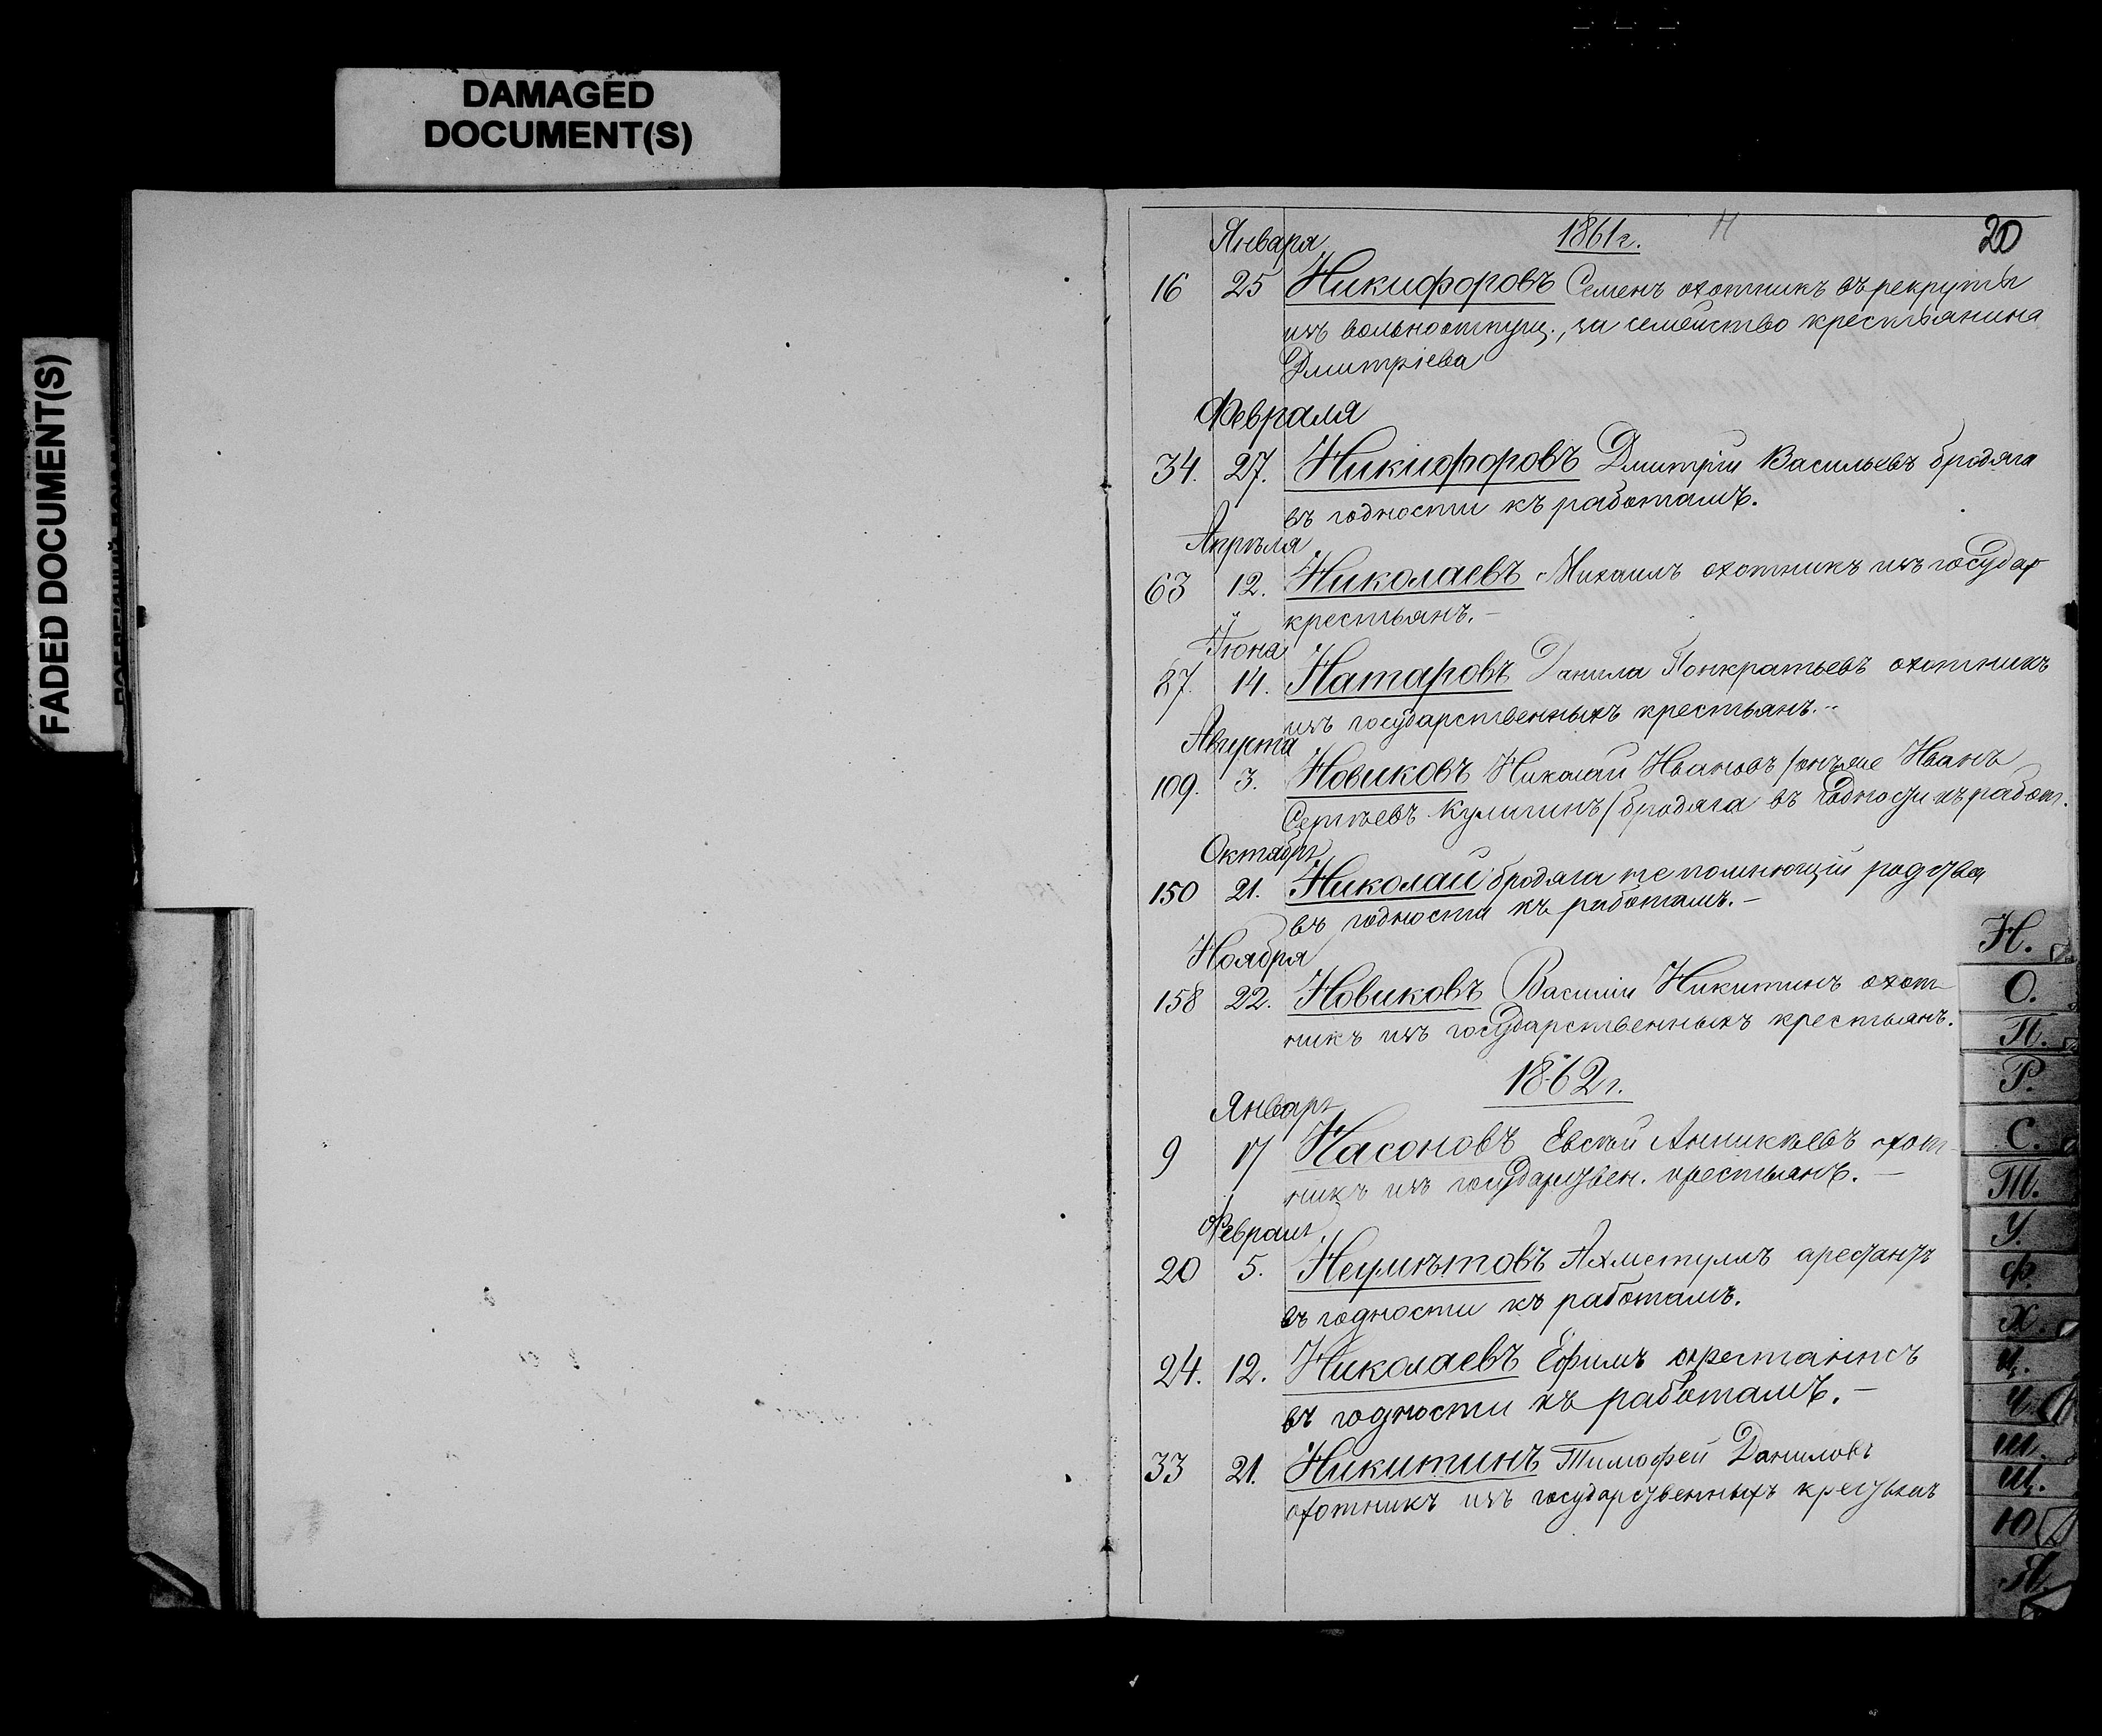 DAMAGED
DOCUMENT(S)
FADED DOCUMENT(S)
1861г. Н 20
Января
16 25 Никифоровъ Семенъ охотникъ въ рекруты
изъ вольноотпущ., за семейство крестьянина
Дмитріева
Февраля
34. 27. Никифоровъ Дмитрій Васильевъ бродяга
въ годности къ работамъ.
Апрѣля
63 12. Николаевъ Михаилъ охотникъ изъ государ
крестьянъ.-
Іюна
87. 14. Натаровъ Данила Понкратьевъ охотникъ
изъ государственныхъ крестьянъ.-
Августа
109. 3. Новиковъ Николай Ивановъ /онъ же Иванъ
Сергѣевъ Кулигинъ/ бродяга въ годности къ работ.
Октября
150 21. Николай бродяга не помнющій родства
въ годности къ работамъ.-
Ноября
158 22. Новиковъ Василій Никитинъ охот-
никъ изъ государственныхъ крестьянъ.
1862г.
Января
9 17 Насоновъ Аникіевъ охот-
никъ изъ государствен. крестьянъ.-
Февраля
20 5. Неумѣтовъ Ахметулъ арестантъ
въ годности къ работамъ.
24. 12. Николаевъ Ефимъ арестантъ
въ годности къ работамъ.-
33 21. Никитинъ Тимофей Даниловъ
охотникъ изъ государственныхъ крестьян
Н.
О.
П.
Р.
С.
Т.
У.
Ф.
Х.
Ц.
Ч.
Ш.
Щ.
Ю
Я.